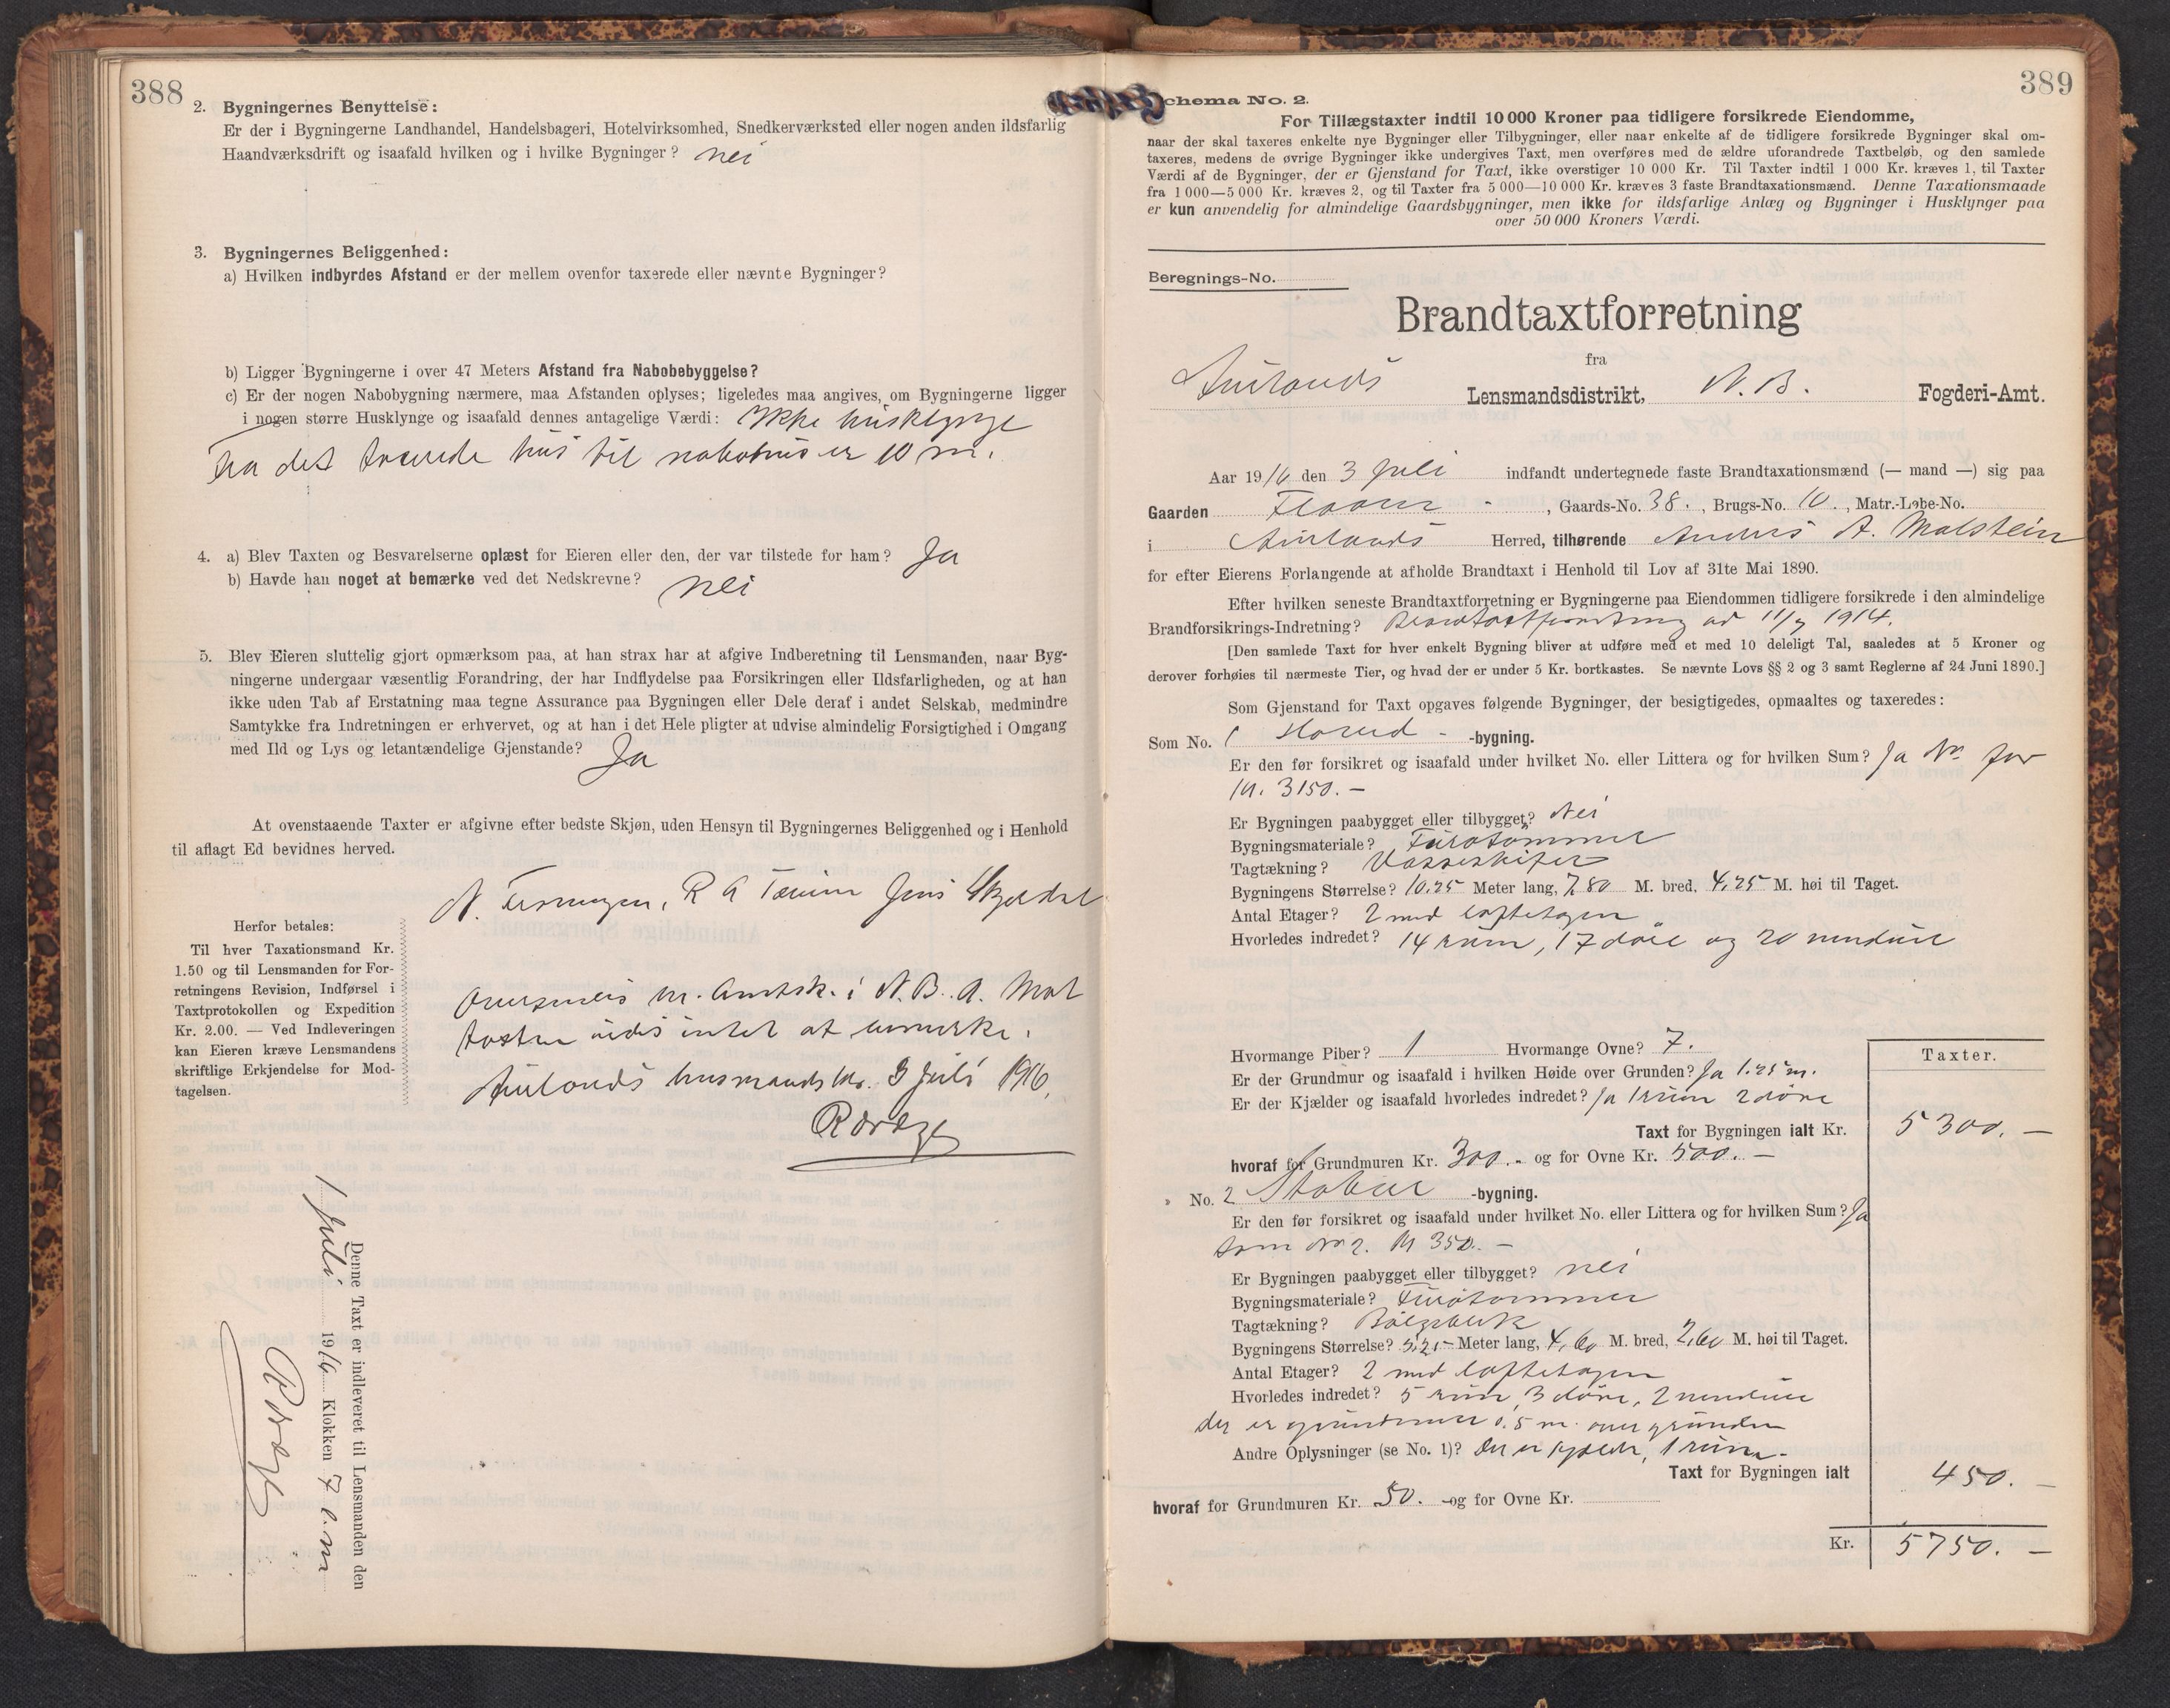 388
2. Bygningernes Benyttelse:
Er der i Bygningerne Landhandel, Handelsbageri, Hotelvirksomhed, Snedkerværksted eller nogen anden ildsfarlig
Haandværksdrift og isaafald hvilken og i hvilke Bygninger? nei
3. Bygningernes Beliggenhed:
a) Hvilken indbyrdes Afstand er der mellem ovenfor taxerede eller nævnte Bygninger?
b) Ligger Bygningerne i over 47 Meters Afstand fra Nabobebyggelse?
c) Er der nogen Nabobygning nærmere, maa Afstanden oplyses; ligeledes maa angives, om Bygningerne ligger
i nogen større Husklynge og isaafald dennes antagelige Værdi: Ikke husklynge
fra det hus til nabohus er 10 m.
4. a) Blev Taxten og Besvarelserne oplæst for Eieren eller den, der var tilstede for ham? Ja
b) Havde han noget at bemærke ved det Nedskrevne? nei
5. Blev Eieren sluttelig gjort opmærksom paa, at han strax har at afgive Indberetning til Lensmanden, naar Byg-
ningerne undergaar væsentlig Forandring, der har Indflydelse paa Forsikringen eller Ildsfarligheden, og at han
ikke uden Tab af Erstatning maa tegne Assurance paa Bygningen eller Dele deraf i andet Selskab, medmindre
Samtykke fra Indretningen er erhvervet, og at han i det Hele pligter at udvise almindelig Forsigtighed i Omgang
med Ild og Lys og letantændelige Gjenstande? Ja
At ovenstaaende Taxter er afgivne efter bedste Skjøn, uden Hensyn til Bygningernes Beliggenhed og i Henhold
til aflagt Ed bevidnes herved.
N. R A Jens Skjerdal
Herfor betales:
Til hver Taxationsmand Kr.
1.50 og til Lensmanden for For-
retningens Revision, Indførsel i
Taxtprotokollen og Expedition
Kr. 2.00. — Ved Indleveringen
kan Eieren kræve Lensmandens
skriftlige Erkjendelse for Mod-
tagelsen.
Oversendes hr. Amtsk. i N. B. A. Mot
taxten vides intet at bemerke.
Aurlands lensmandsktr. 3 Juli 1916,
Denne Taxt er indleveret til Lensmanden den
1 Juli 1916 Klokken 7 e.m
389
Schema No. 2.
For Tillægstaxter indtil 10 000 Kroner paa tidligere forsikrede Eiendomme,
naar der skal taxeres enkelte nye Bygninger eller Tilbygninger, eller naar enkelte af de tidligere forsikrede Bygninger skal om-
taxeres, medens de øvrige Bygninger ikke undergives Taxt, men overføres med de ældre uforandrede Taxtbeløb, og den samlede
Værdi af de Bygninger, der er Gjenstand for Taxt, ikke overstiger 10 000 Kr. Til Taxter indtil 1 000 Kr. kræves 1, til Taxter
fra 1 000—5 000 Kr. kræves 2, og til Taxter fra 5 000—10 000 Kr. kræves 3 faste Brandtaxationsmænd. Denne Taxationsmaade
er kun anvendelig for almindelige Gaardsbygninger, men ikke for ildsfarlige Anlæg og Bygninger i Husklynger paa
over 50 000 Kroners Værdi.
Beregnings-No.
Brandtaxtforretning
fra
Aurlands Lensmandsdistrikt, N. B. Fogderi-Amt.
Aar 1916 den 3 Juli indfandt undertegnede faste Brandtaxationsmænd (— mand —) sig paa
Gaarden Flaam -, Gaards-No. 38., Brugs-No. 10., Matr.-Løbe-No.
i Aurlands Herred, tilhørende Anders A. Molstein
for efter Eierens Forlangende at afholde Brandtaxt i Henhold til Lov af 31te Mai 1890.
Efter hvilken seneste Brandtaxtforretning er Bygningerne paa Eiendommen tidligere forsikrede i den almindelige
Brandforsikrings-Indretning? Brandtaxtforretning av 11/7 1914.
[Den samlede Taxt for hver enkelt Bygning bliver at udføre med et med 10 deleligt Tal, saaledes at 5 Kroner og
derover forhøies til nærmeste Tier, og hvad der er under 5 Kr. bortkastes. Se nævnte Lovs §§ 2 og 3 samt Reglerne af 24 Juni 1890.]
Som Gjenstand for Taxt opgaves følgende Bygninger, der besigtigedes, opmaaltes og taxeredes:
Som No. 1 Hoved - -bygning.
Er den før forsikret og isaafald under hvilket No. eller Littera og for hvilken Sum? Ja No. for
kr. 3150. —
Er Bygningen paabygget eller tilbygget? Nei
Bygningsmateriale? Furotømmer
Tagtækning? Vosseskifer
Bygningens Størrelse? 10,25 Meter lang, 7,80 M. bred, 4,25 M. høi til Taget.
Antal Etager? 2 med loftetagen
Hvorledes indredet? 14 rum, 17 døre og 20 vinduer
Hvormange Piber? 1 Hvormange Ovne? 7.
Er der Grundmur og isaafald i hvilken Høide over Grunden? Ja 1.25 m.
Er der Kjælder og isaafald hvorledes indredet? Ja 1 rum 2 døre
Taxter.
Taxt for Bygningen ialt Kr. 5300. —
hvoraf for Grundmuren Kr. 300. - og for Ovne Kr. 500. —
" No. 2 Stabur -bygning.
Er den før forsikret og isaafald under hvilket No. eller Littera og for hvilken Sum? Ja
som No 2. Kr 350. —
Er Bygningen paabygget eller tilbygget? nei
Bygningsmateriale? Furotømmer
Tagtækning? Bølgeblik
Bygningens Størrelse? 5,25 Meter lang, 4,60 M. bred, 2,60 M. høi til Taget.
Antal Etager? 2 med loftetagen
Hvorledes indredet? 5 rum, 3 døre, 2 vinduer
der er grundmur 0.5 m. over grunden
Andre Oplysninger (se No. 1)? Der er kjelder, 1 rum.-
Taxt for Bygningen ialt 450. —
hvoraf for Grundmuren Kr. 50. - og for Ovne Kr.
Kr. 5750. —